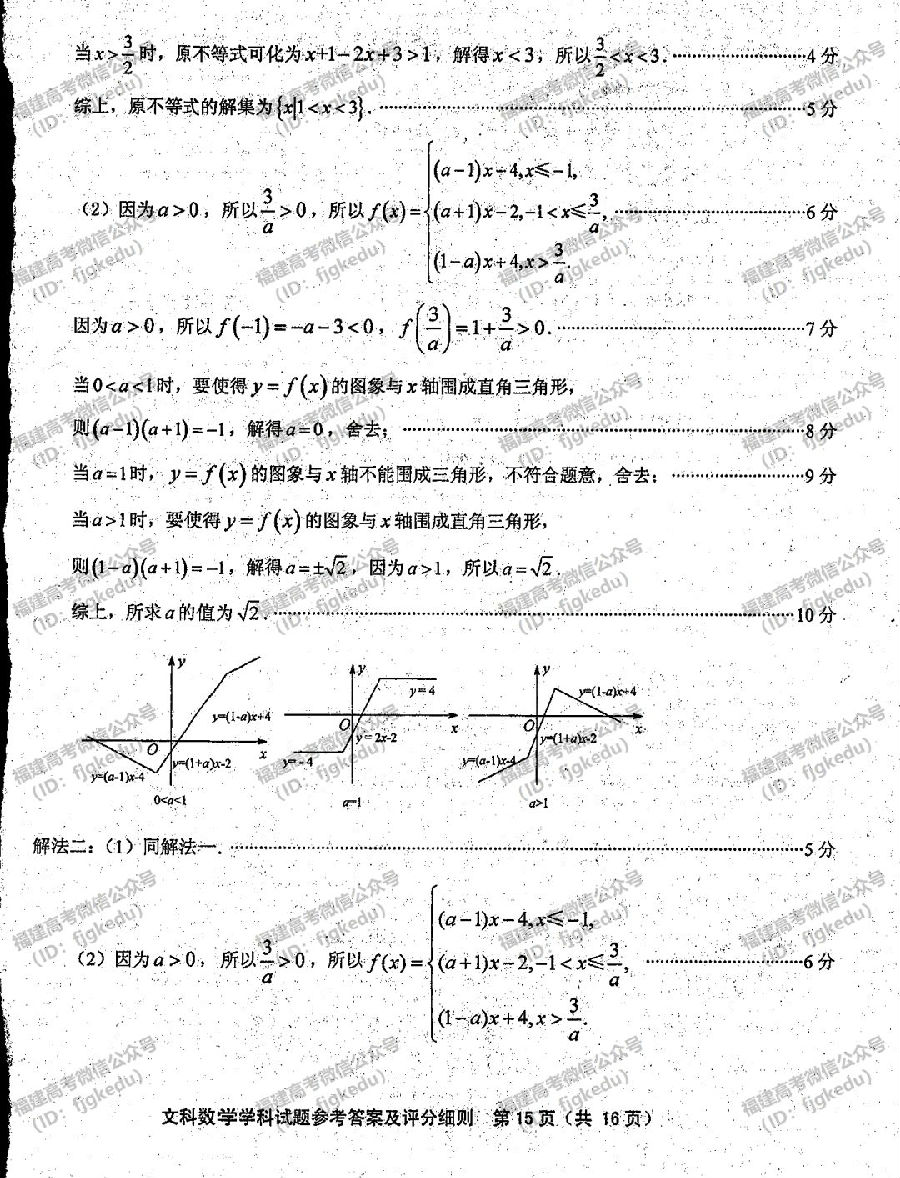 当x>3/2时，原不等式可化为x+1-2x+3>1，解得x<3，所以3/2<x<3.……4分
综上，原不等式的解集为{x|1<x<3}.……5分
（2）因为a>0，所以3/a>0，所以f(x)={(a-1)x-4,x≤-1,
(a+1)x-2,-1<x≤3/a,……6分
(1-a)x+4,x>3/a.
因为a>0，所以f(-1)=-a-3<0，f(3/a)=1+3/a>0.……7分
当0<a<1时，要使得y=f(x)的图象与x轴围成直角三角形，
则(a-1)(a+1)=-1，解得a=0，舍去；……8分
当a=1时，y=f(x)的图象与x轴不能围成三角形，不符合题意，舍去；……9分
当a>1时，要使得y=f(x)的图象与x轴围成直角三角形，
则(1-a)(a+1)=-1，解得a=±√2，因为a>1，所以a=√2.
综上，所求a的值为√2.……10分
y
y=(1-a)x+4
O
x
y=(1+a)x-2
y=(a-1)x-4
0<a<1
y
y=4
O
x
y=2x-2
y=-4
a=1
y
y=(1-a)x+4
O
x
y=(1+a)x-2
y=(a-1)x-4
a>1
解法二：（1）同解法一.……5分
（2）因为a>0，所以3/a>0，所以f(x)={(a-1)x-4,x≤-1,
(a+1)x-2,-1<x≤3/a,……6分
(1-a)x+4,x>3/a.
文科数学学科试题参考答案及评分细则 第15页（共 16页）
福建高考微信公众号
(ID: fjgkedu)